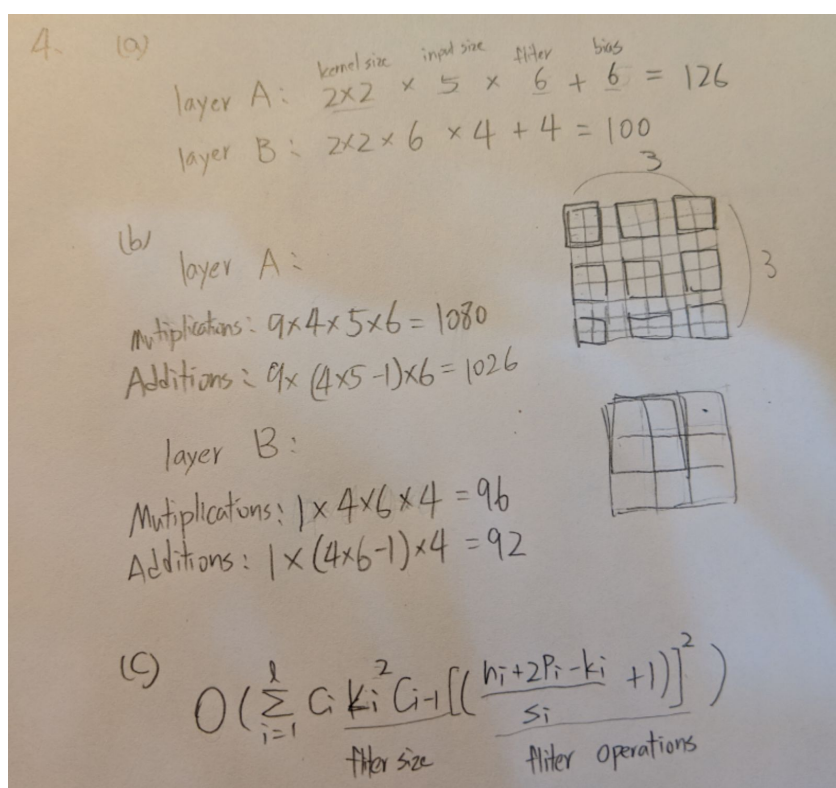 4. (a)
kernel size input size fliter bias
layer A: 2×2 × 5 × 6 + 6 = 126
layer B: 2×2×6 ×4 +4 = 100
3
(b)
layer A:
3
Mutiplications: 9×4×5×6 = 1080
Additions: 9×(4×5-1)×6 = 1026
layer B:
Mutiplications: 1×4×6×4 = 96
Additions: 1×(4×6-1)×4 = 92
(c)
O(∑_{i=1}^{l} Ci ki² Ci-1 [((ni+2Pi-ki)/si +1)]²)
fliter size fliter operations